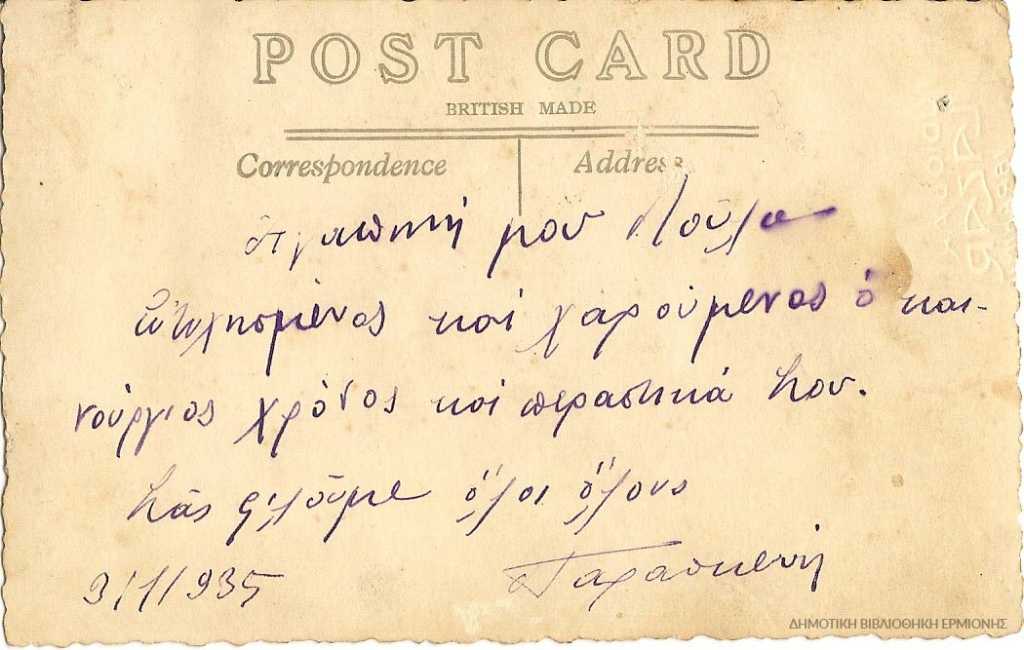 POST CARD
BRITISH MADE
Correspondence Address
Ἀγαπητή μου Κούλα
Εὐτυχησμένος καί χαρούμενος ὁ και-
νούργιος χρόνος καί περαστικά σου.
Σᾶς φιλοῦμε ὅλοι ὅλους
Παρασκευή
3/1/935
ΔΗΜΟΤΙΚΗ ΒΙΒΛΙΟΘΗΚΗ ΕΡΜΙΟΝΗΣ